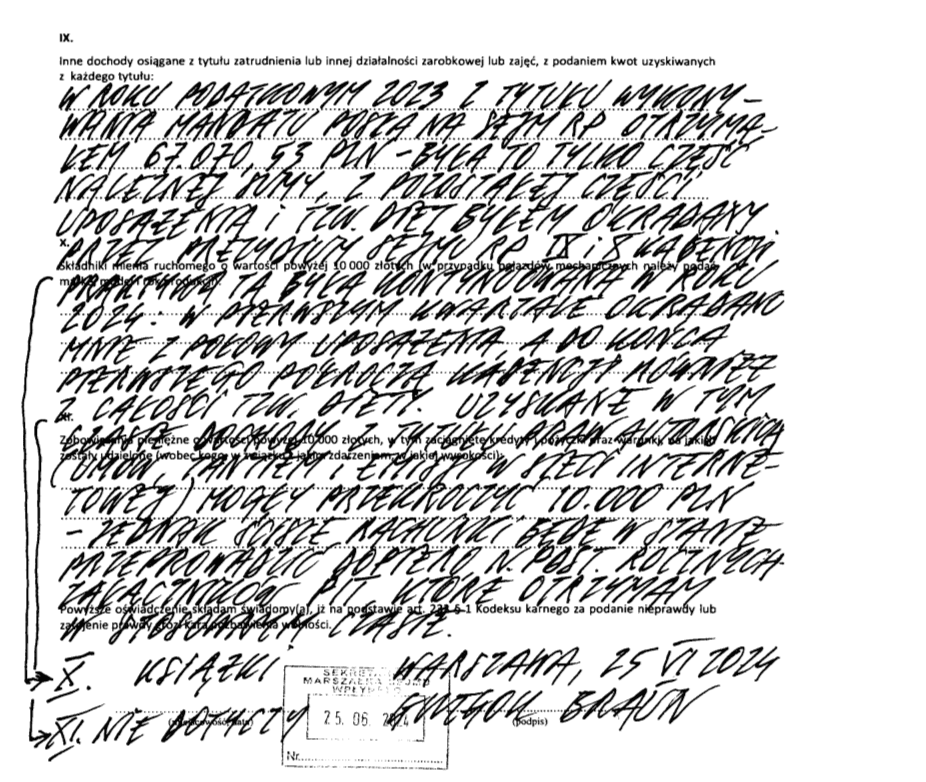 IX.
Inne dochody osiągane z tytułu zatrudnienia lub innej działalności zarobkowej lub zajęć, z podaniem kwot uzyskiwanych
z każdego tytułu:
W ROKU PODATKOWYM 2023 Z TYTUŁU WYKONY-
WANIA MANDATU POSŁA NA SEJM RP OTRZYMA-
ŁEM 67.070,53 PLN - BYŁA TO TYLKO CZĘŚĆ
NALEŻNEJ SUMY, Z POZOSTAŁEJ CZĘŚCI
UPOSAŻENIA i TZW. DIET BYŁEM OKRADANY
X.
PRZEZ PREZYDIUM SEJMU RP IX i X KADENCJI.
Składniki mienia ruchomego o wartości powyżej 10 000 złotych (w przypadku pojazdów mechanicznych należy podać
PRAKTYKA TA BYŁA KONTYNUOWANA W ROKU
2024: W PIERWSZYM KWARTALE OKRADANO
MNIE Z POŁOWY UPOSAŻENIA, A DO KOŃCA
PIERWSZEGO PÓŁROCZA KADENCJI RÓWNIEŻ
Z CAŁOŚCI TZW. DIETY. UZYSKANE W TYM
XI.
CZASIE DOCHODY Z TYTUŁU PRAW AUTORSKICH
Zobowiązania pieniężne o wartości powyżej 10 000 złotych, w tym zaciągnięte kredyty i pożyczki oraz warunki, na jakich
zostały udzielone (wobec kogo, w związku z jakim zdarzeniem, w jakiej wysokości):
(UMÓW TANTIEM Z W SIECI INTERNE-
TOWEJ) MOGŁY PRZEKROCZYĆ 10.000 PLN
- JEDNAK ŚCISŁE RACHUNKI BĘDĘ W STANIE
PRZEPROWADZIĆ DOPIERO N. PODST. ROCZNYCH
PIT, KTÓRE OTRZYMAM
Powyższe oświadczenie składam świadomy(a), iż na podstawie art. 233 § 1 Kodeksu karnego za podanie nieprawdy lub
zatajenie prawdy grozi kara pozbawienia wolności.
W STOSOWNYM CZASIE.
X. KSIĄŻKI
WARSZAWA, 25 VI 2024
SEKRETARIAT
MARSZAŁKA SEJMU
WPŁYNĘŁO
25. 06. 2024
Nr
XI. NIE DOTYCZY
GRZEGORZ BRAUN
(miejscowość, data)
(podpis)